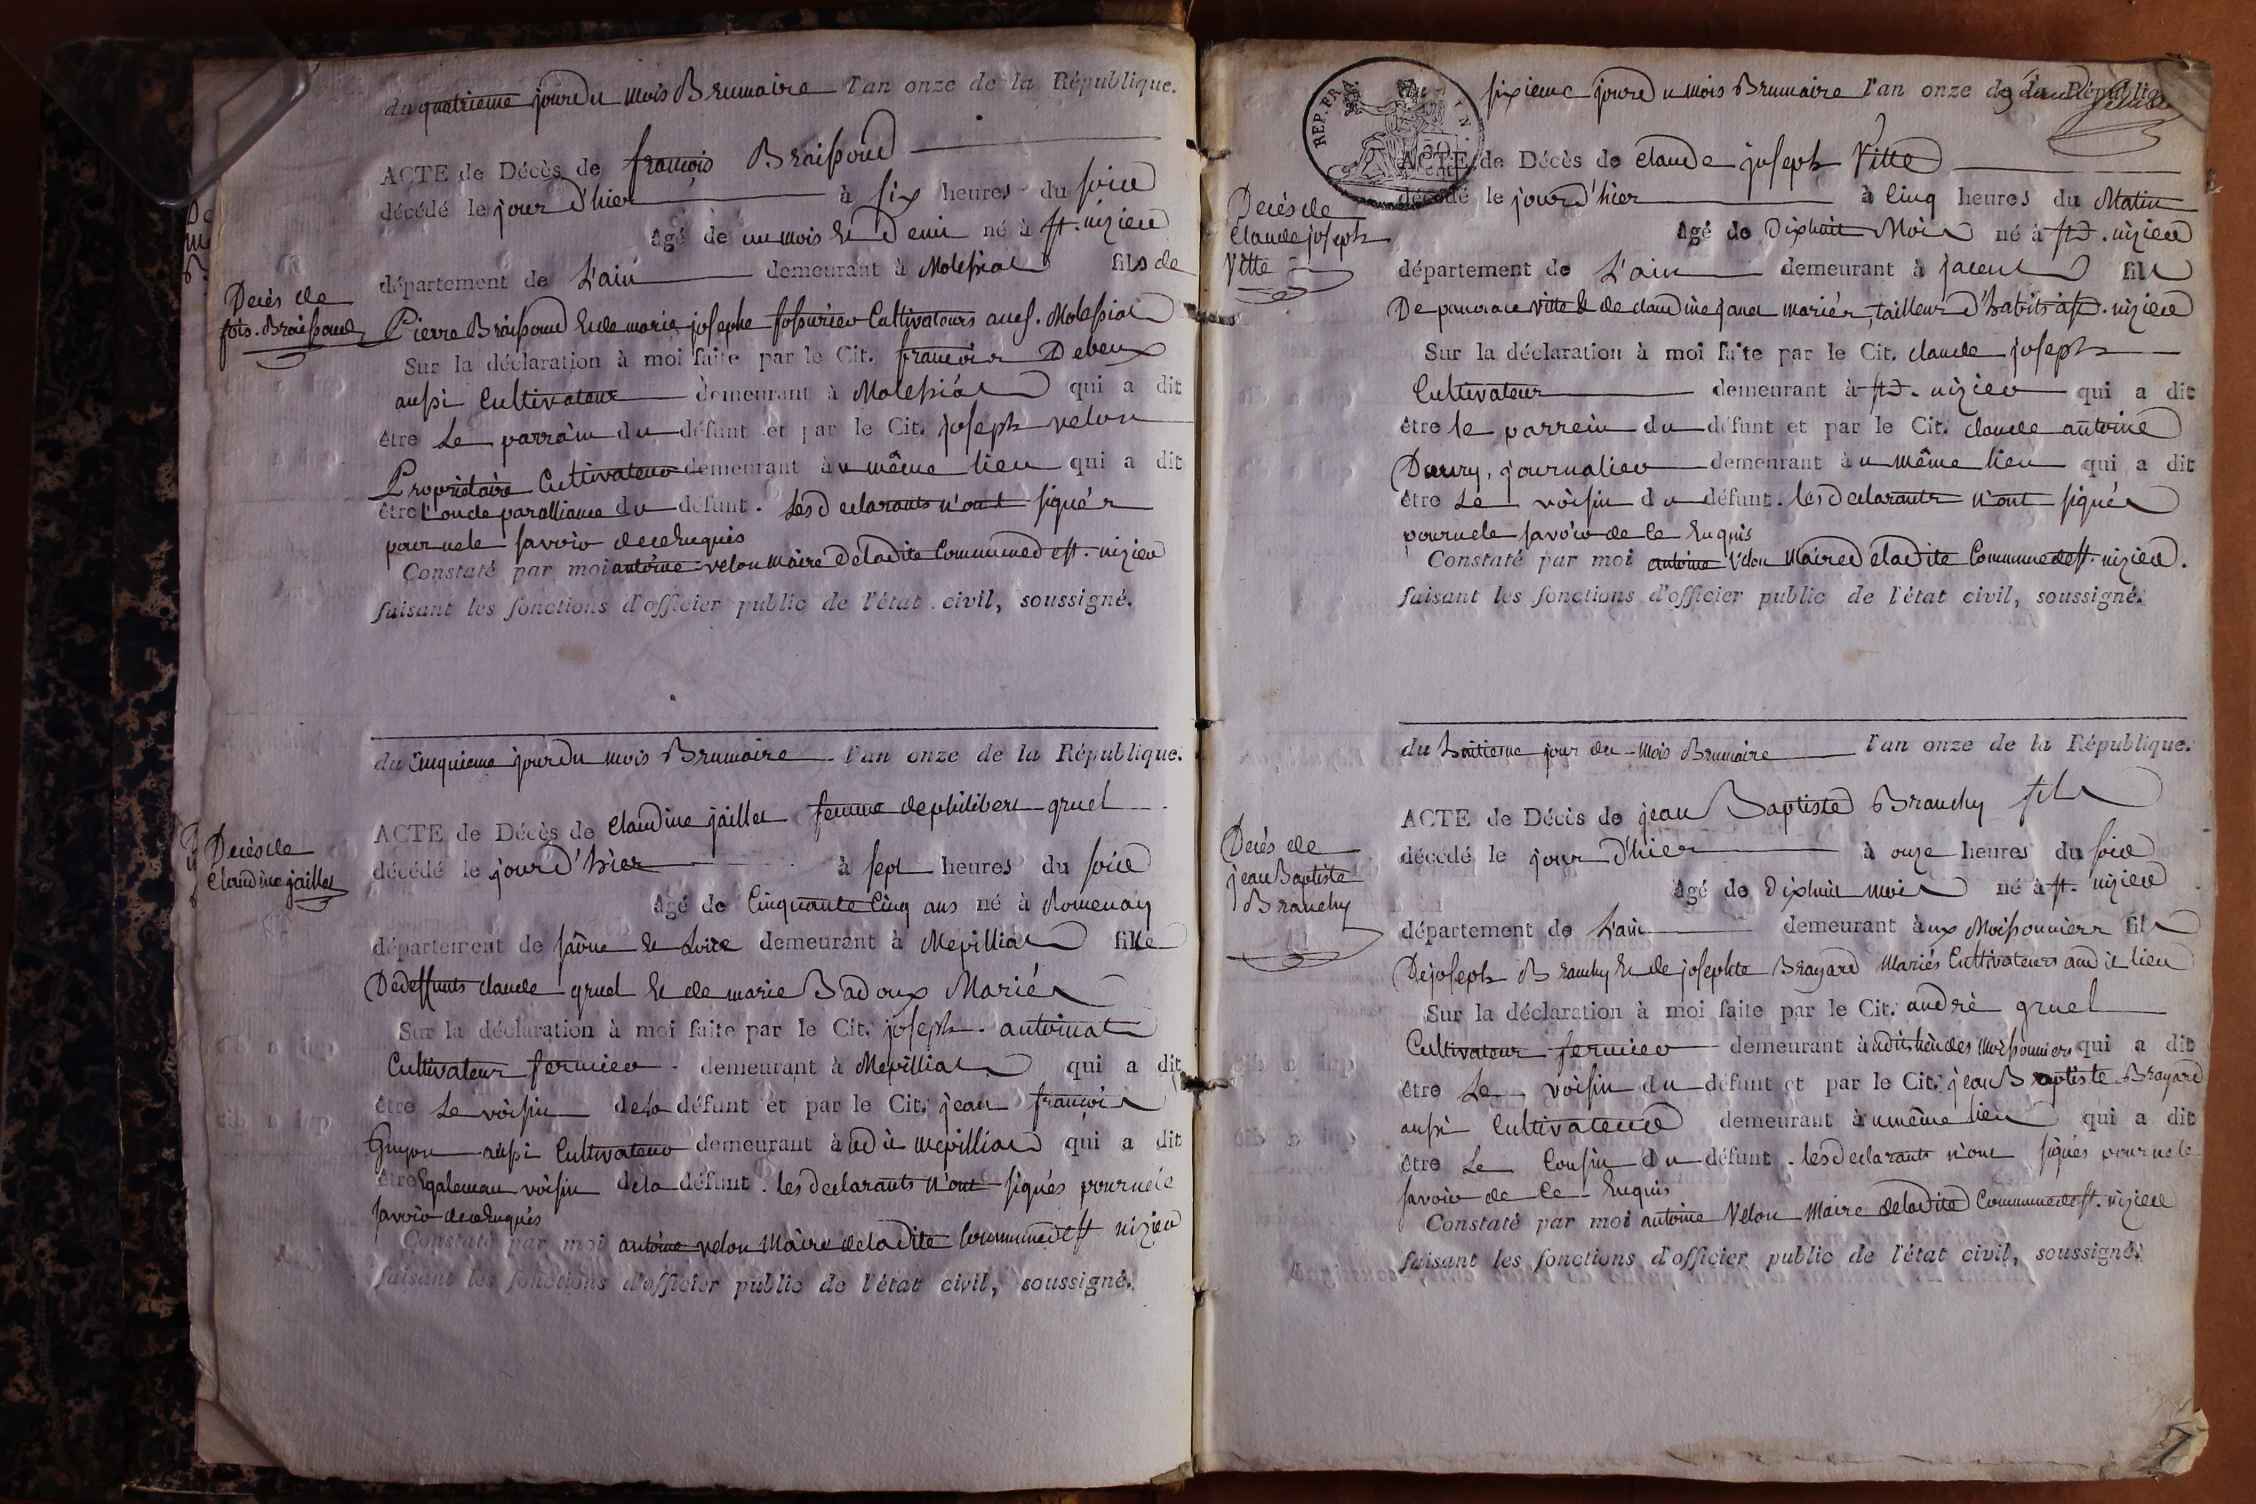 du quatrieme jour du mois Brumaire l'an onze de la République.
ACTE de Décès de francois Braissoud
décédé le jour d'hier à six heures du soir
âgé de un mois et demi né à st. nizier
département de L'ain demeurant à Molessiat fils de
Decès de
fois. Braissoud
Pierre Braissoud et de marie josephe Cultivateurs aud. Molessiat
Sur la déclaration à moi faite par le Cit. francois Debeux
aussi Cultivateur demeurant à Molessiat qui a dit
être Le parrain du défunt et par le Cit. joseph velon
Propriétaire Cultivateur demeurant au même lieu qui a dit
être l'oncle par alliance du défunt. Les declarants n'ont signés
pour ne le savoir de ce Enquis
Constaté par moi antoine velon maire de ladite Commune de st. nizier
faisant les fonctions d'officier public de l'état civil, soussigné.
du Cinquieme jour du mois Brumaire l'an onze de la République.
ACTE de Décès de Claudine jaillet femme de philibert gruel
décédé le jour d'hier à sept heures du soir
Decès de
Claudine jaillet
âgé de Cinquante Cinq ans né à Romenay
département de saône et Loire demeurant à Mepilliat fille
De deffunts claude gruel et de marie Badoux Mariés
Sur la déclaration à moi faite par le Cit. joseph antoinat
Cultivateur fermier demeurant à Mepilliat qui a dit
être Le voisin de la défunt et par le Cit. jean francois
Guyon aussi Cultivateur demeurant à udit mepilliat qui a dit
être Egalement voisin de la défunt. les declarants n'ont signés pour ne le
savoir de ce Enquis
Constaté par moi antoine velon Maire de ladite Commune de st nizier
faisant les fonctions d'officier public de l'état civil, soussigné.
REP. FRA.
sixieme jour du mois Brumaire l'an onze de la République
ACTE de Décès de Claude joseph Vitte
décédé le jour d'hier à Cinq heures du Matin
Decés de
Claude joseph
Vitte
âgé de Dixhuit Mois né à st. nizier
département de L'ain demeurant à fils
De pancrace vitte et de claudine janet mariés, tailleur d'habits à st. nizier
Sur la déclaration à moi faite par le Cit. claude joseph
Cultivateur demeurant à st. nizier qui a dit
être le parrein du défunt et par le Cit. claude antoine
journalier demeurant au même lieu qui a dit
être Le voisin du défunt. les declarants n'ont signés
pour ne le savoir de ce Enquis
Constaté par moi antoine Velon Maire de ladite Commune de st. nizier.
faisant les fonctions d'officier public de l'état civil, soussigné.
du huitieme jour du mois Brumaire l'an onze de la République.
ACTE de Décès de jean Baptiste Branchy fils
décédé le jour d'hier à onze heures du soir
Decés de
jean Baptiste
Branchy
âgé de Dixhuit mois né à st. nizier
département de L'ain demeurant aux Moissonniers fils
De joseph Branchy et de josephte Brayard Mariés Cultivateurs audit lieu
Sur la déclaration à moi faite par le Cit. andré gruel
Cultivateur fermier demeurant à udit lieu des moissonniers qui a dit
être Le voisin du défunt et par le Cit. jean Baptiste Brayard
aussi Cultivateur demeurant au même lieu qui a dit
être Le Cousin du défunt. les declarants n'ont signés pour ne le
savoir de Ce Enquis
Constaté par moi antoine Velon Maire de ladite Commune de st. nizier
faisant les fonctions d'officier public de l'état civil, soussigné.